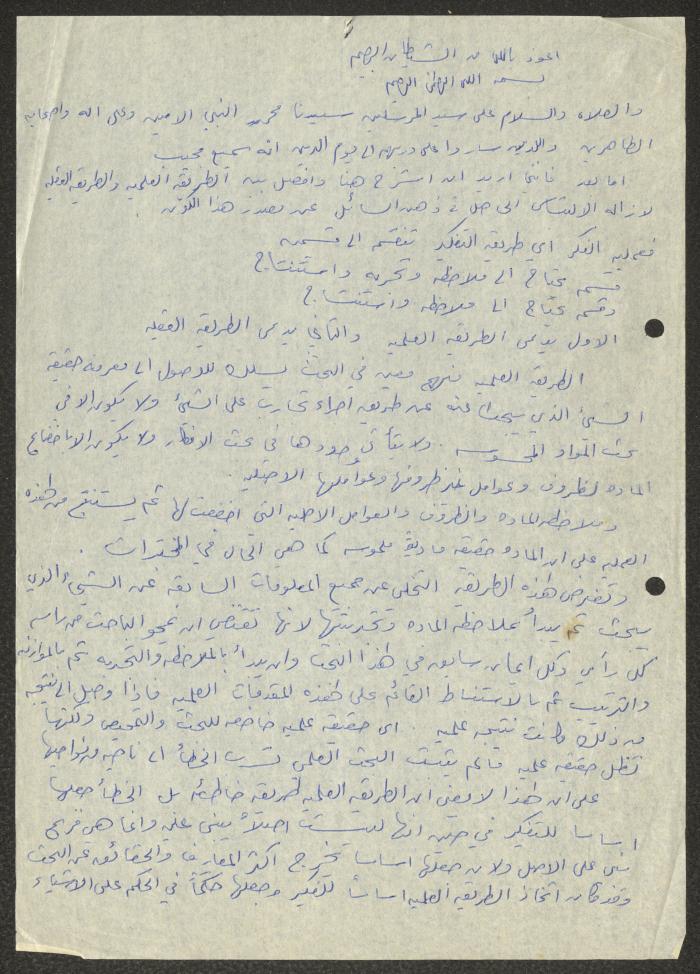 اعوذ بالله من الشيطان الرجيم
بسم الله الرحمن الرحيم
والصلاه والسلام على سيد المرسلين سيدنا محمد النبي الامين وعلى اله واصحابه
الطاهرين والذين ساروا على دربهم الى يوم الدين انه سميع مجيب
اما بعد فانني اريد ان اشرح هنا وافصل بين الطريقه العلميه والطريقه العقليه
لازاله الالتباس الى حصل في ذهن السائل عن مصدر هذا الكون
فعمليه الفكر اي طريقه التفكير تنقسم الى قسمين
قسم يحتاج الى ملاحظه وتجربه واستنتاج
وقسم يحتاج الى ملاحظه واستنتاج
الاول يدعى الطريقه العلميه والثاني يدعى الطريقه العقليه
الطريقه العلميه منهج معين في البحث يسلك للوصول الى معرفه حقيقة
الشيئ الذي يبحث عنه عن طريق اجراء تجارب على الشيئ ولا يكون الا في
بحث المواد المحسوسه ولا يتأتى وجودها في بحث الافكار ولا يكون الا باخضاع
الماده لظروف وعوامل غير ظروفها وعواملها الاصليه
وملاحظه الماده والظروف والعوامل الاصليه التي اخضعت لها ثم يستنتج من هذه
العمليه على ان الماده حقيقه ماديه ملموسه كما هي الحال في المختبرات .
وتفترض هذه الطريقه التخلي عن جميع المعلومات السابقه عن الشيئ الذي
يبحث ثم يبدأ بملاحظه الماده وتجربتها لانها تقتضي ان يمحو الباحث من راسه
كل رأي وكل ايمان سابق في هذا البحث وان يبدأ بالملاحظه والتجربه ثم بالموازنه
والترتيب ثم بالاستنباط القائم على هذه المقدمات العلميه فاذا وصل الى نتيجه
من ذلك كانت نتيجه علميه اي حقيقه علميه خاضعه للبحث والتمحيص ولكنها
تظل حقيقه علميه ما لم يثبت البحث العلمي تسرب الخطأ الى ناحيه من نواحيها
على ان هذا لا يعني ان الطريقه العلميه طريقه خاطئه بل الخطأ جعلها
اساسا للتفكير في حين انها ليست اصلاً يبنى عليه وانما هي فرع
بني على الاصل ولان جعلها اساسا يخرج اكثر المعارف والحقائق عن البحث
وقد كان اتخاذ الطريقه العلميه اساساً للتفكير وجعلها حكماً في الحكم على الاشياء